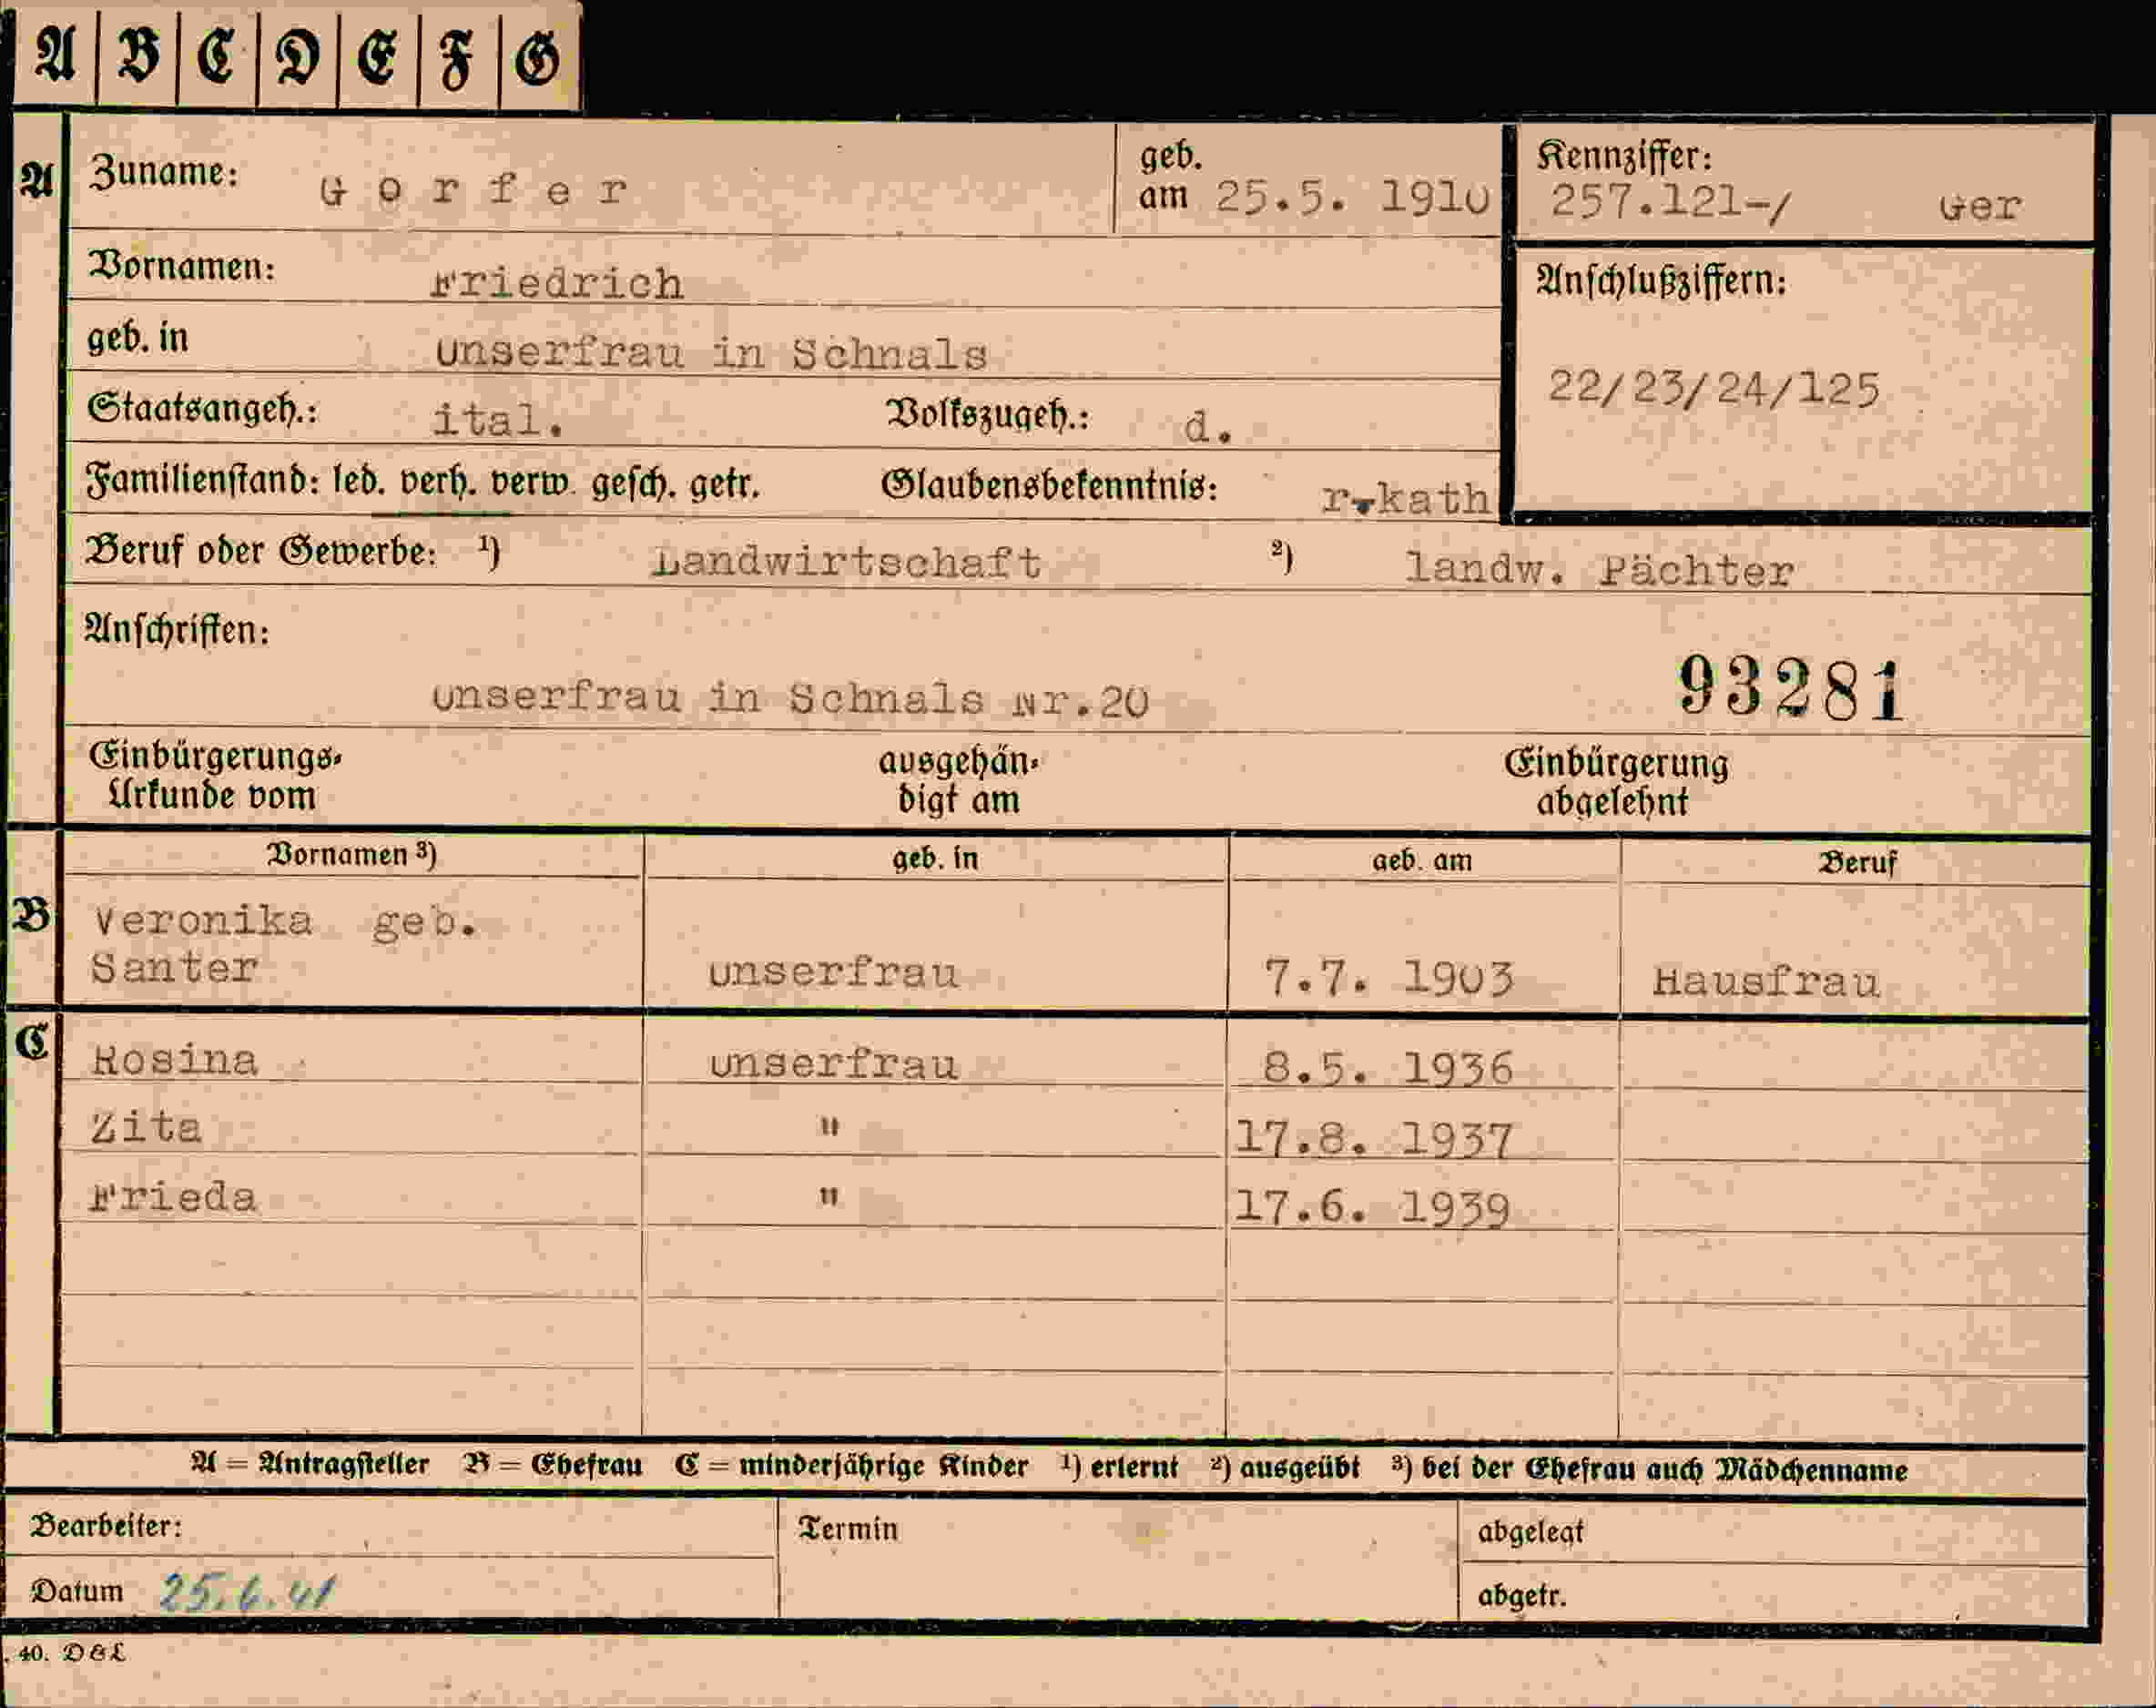 A B C D E F G
A Zuname: Gorfer geb. am 25.5. 1910 Kennziffer: 257.121-/ Ger
Vornamen: Friedrich Anschlußziffern:
geb. in Unserfrau in Schnals 22/23/24/125
Staatsangeh.: ital. Volkszugeh.: d.
Familienstand: led. verh. verw. gesch. getr. Glaubensbekenntnis: r.kath
Beruf oder Gewerbe: ¹) Landwirtschaft ²) landw. Pächter
Anschriften:
Unserfrau in Schnals Nr.20 93281
Einbürgerungs- ausgehän- Einbürgerung
Urkunde vom digt am abgelehnt
Vornamen ³) geb. in geb. am Beruf
B Veronika geb.
Santer Unserfrau 7.7. 1903 Hausfrau
C Rosina Unserfrau 8.5. 1936
Zita " 17.8. 1937
Frieda " 17.6. 1939
A = Antragsteller B = Ehefrau C = minderjährige Kinder ¹) erlernt ²) ausgeübt ³) bei der Ehefrau auch Mädchenname
Bearbeiter: Termin abgelegt
Datum 25.6.41 abgetr.
. 40. D & L